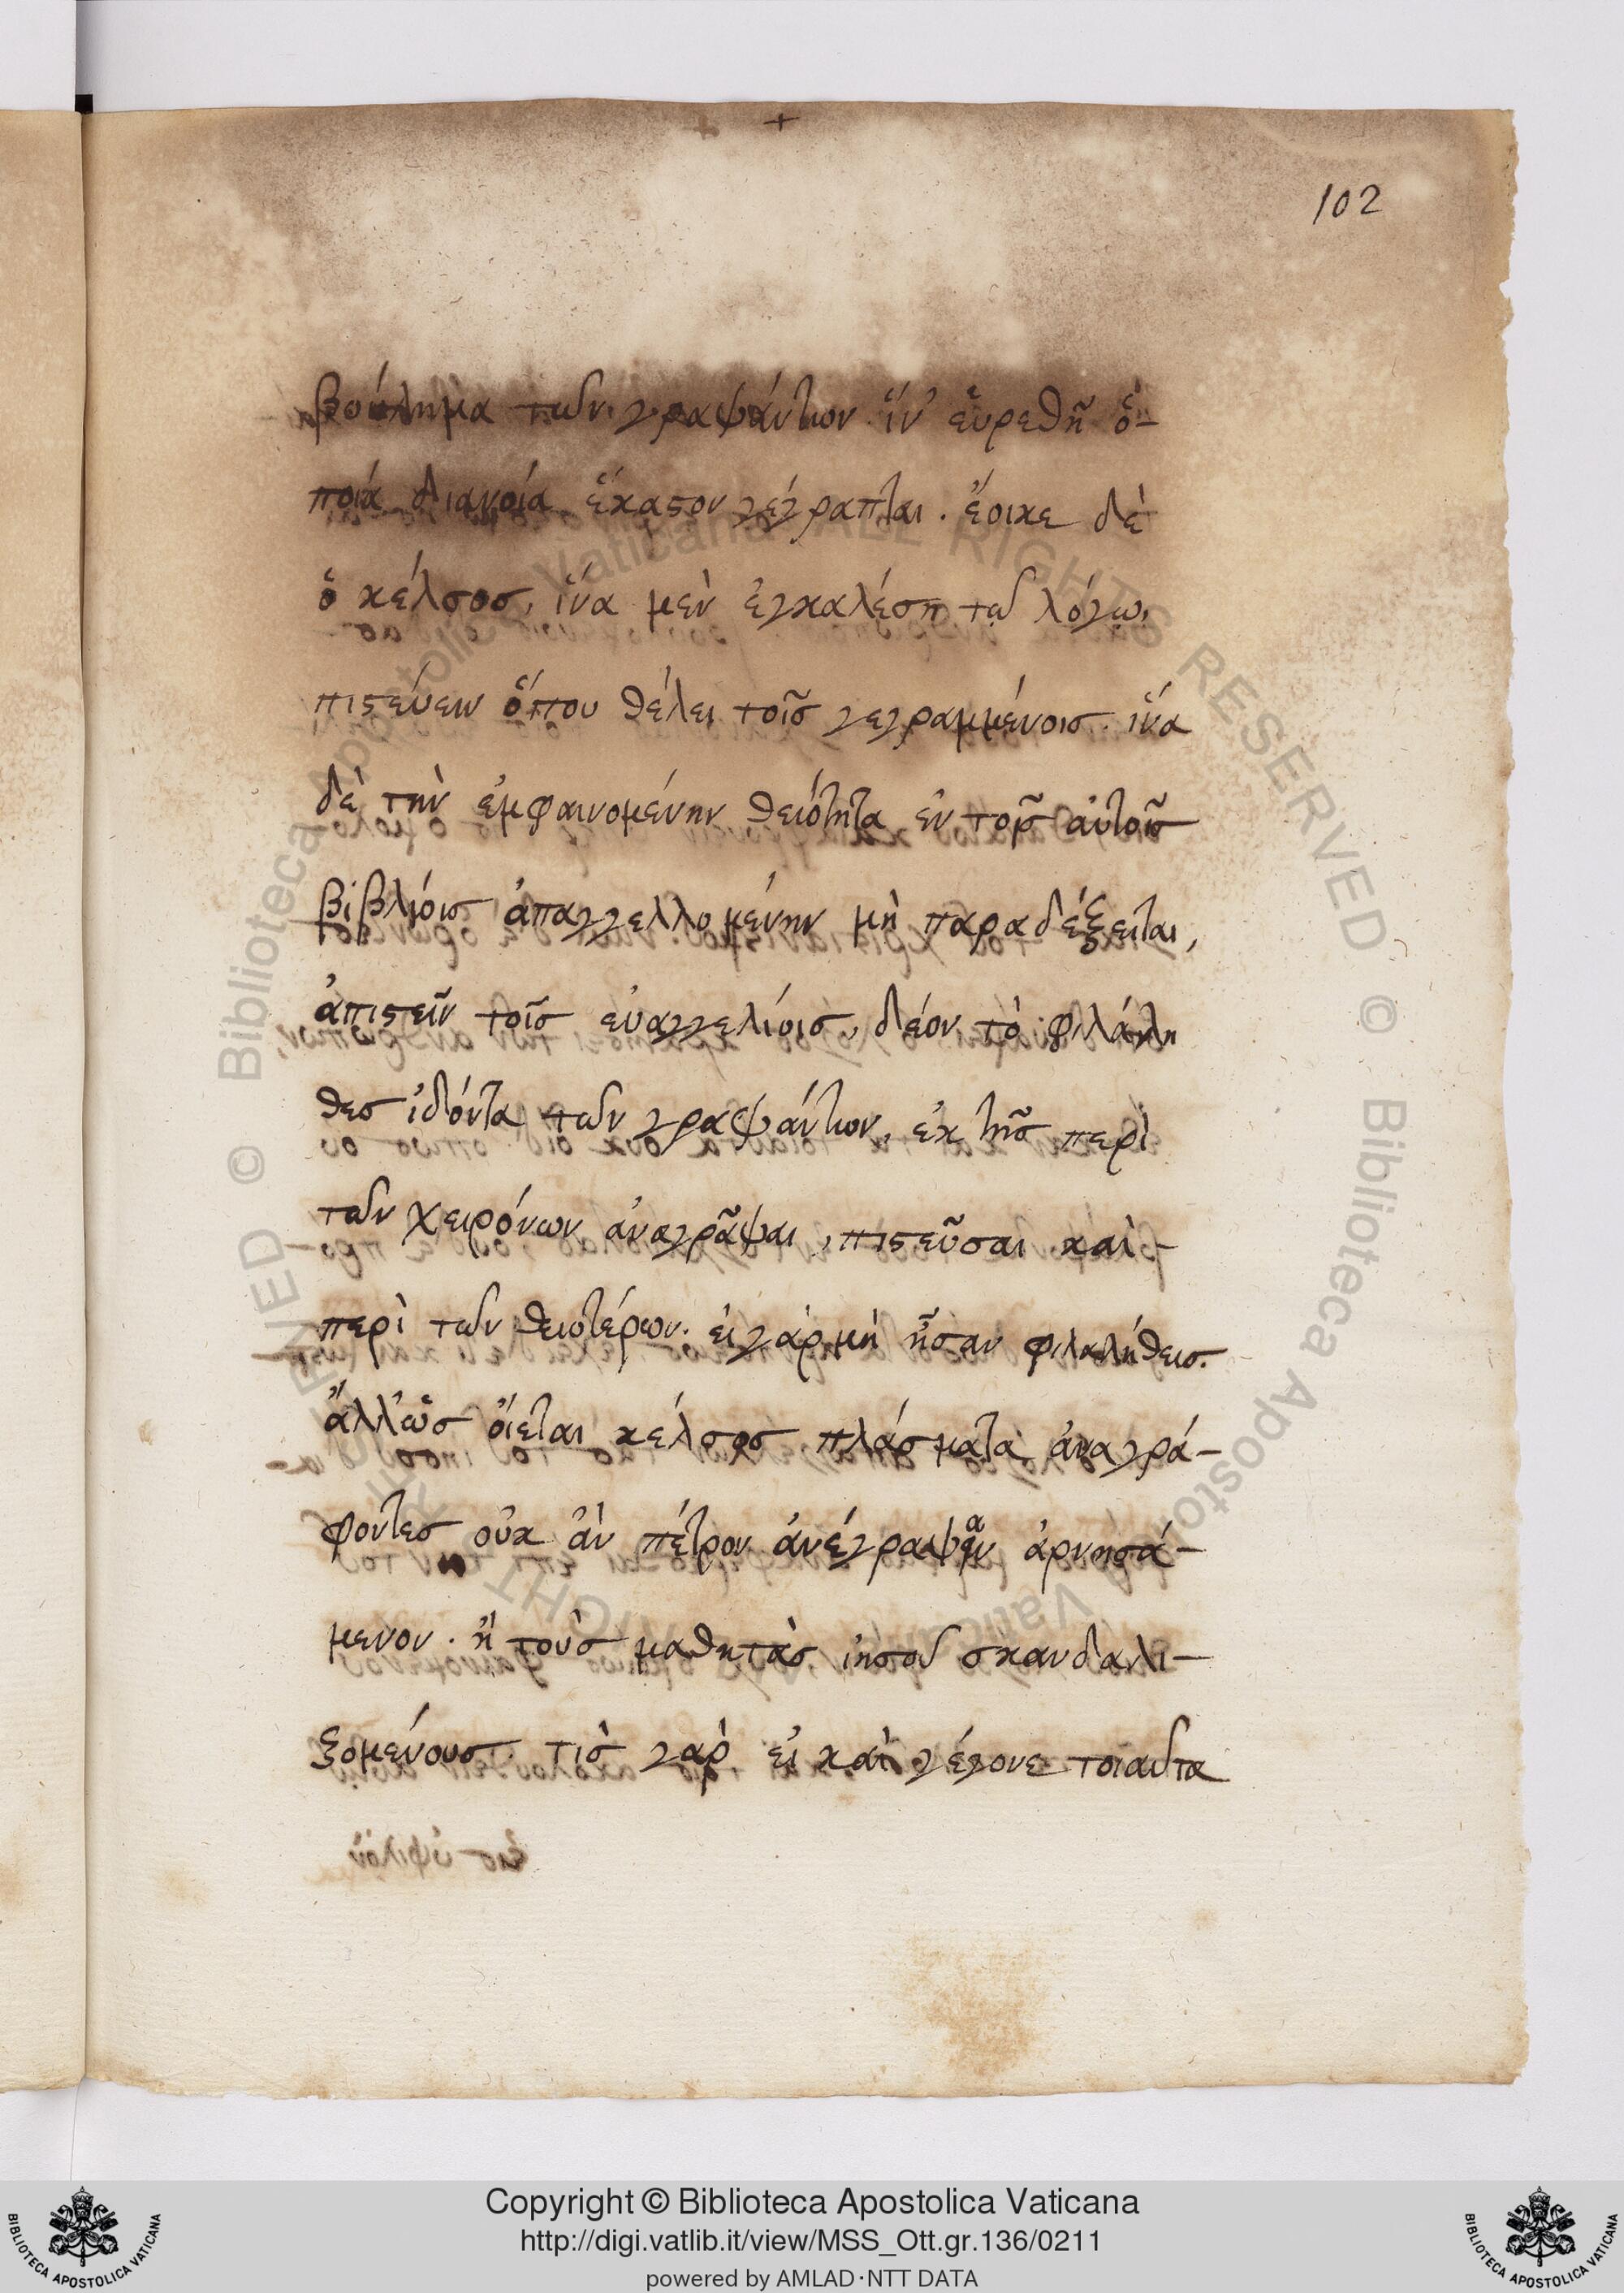 +
102
βούλημα τῶν γραψάντων. ἵν' εὑρεθῆ ὁ-
ποία διανοία ἕκαστον γέγραπται. ἔοικε δὲ
ὁ κέλσος, ἵνα μὲν ἐγκαλέση τῶ λόγω,
πιστεύειν ὅπου θέλει τοῖς γεγραμμένοις. ἵνα
δὲ τὴν ἐμφαινομένην θειότητα ἐν τοῖς αὐτοῖς
βιβλίοις ἀπαγγελλομένην μὴ παραδέξειται,
ἀπιστεῖν τοῖς εὐαγγελίοις, δέον τὸ φιλάλη
θες ἰδόντα τῶν γραψάντων, ἐκ τῆς περὶ
τῶν χειρόνων ἀναγρᾶψαι, πιστεῦσαι καὶ-
περὶ τῶν θειοτέρων. εἰ γὰρ μὴ ἦσαν φιλαλήθεις.
ἄλλ' ὡς ὄιεται κέλσος πλάσματα ἀναγρά-
φοντες οὐκ ἂν πέτρον ἀνέγραψαν ἀρνησά-
μενον. ἢ τοὺς μαθητὰς ἰησοῦ σκανδαλι-
ζομένους. τὶς γὰρ εἰ καὶ γέγονε τοιαῦτα
Copyright © Biblioteca Apostolica Vaticana
http://digi.vatlib.it/view/MSS_Ott.gr.136/0211
powered by AMLAD·NTT DATA